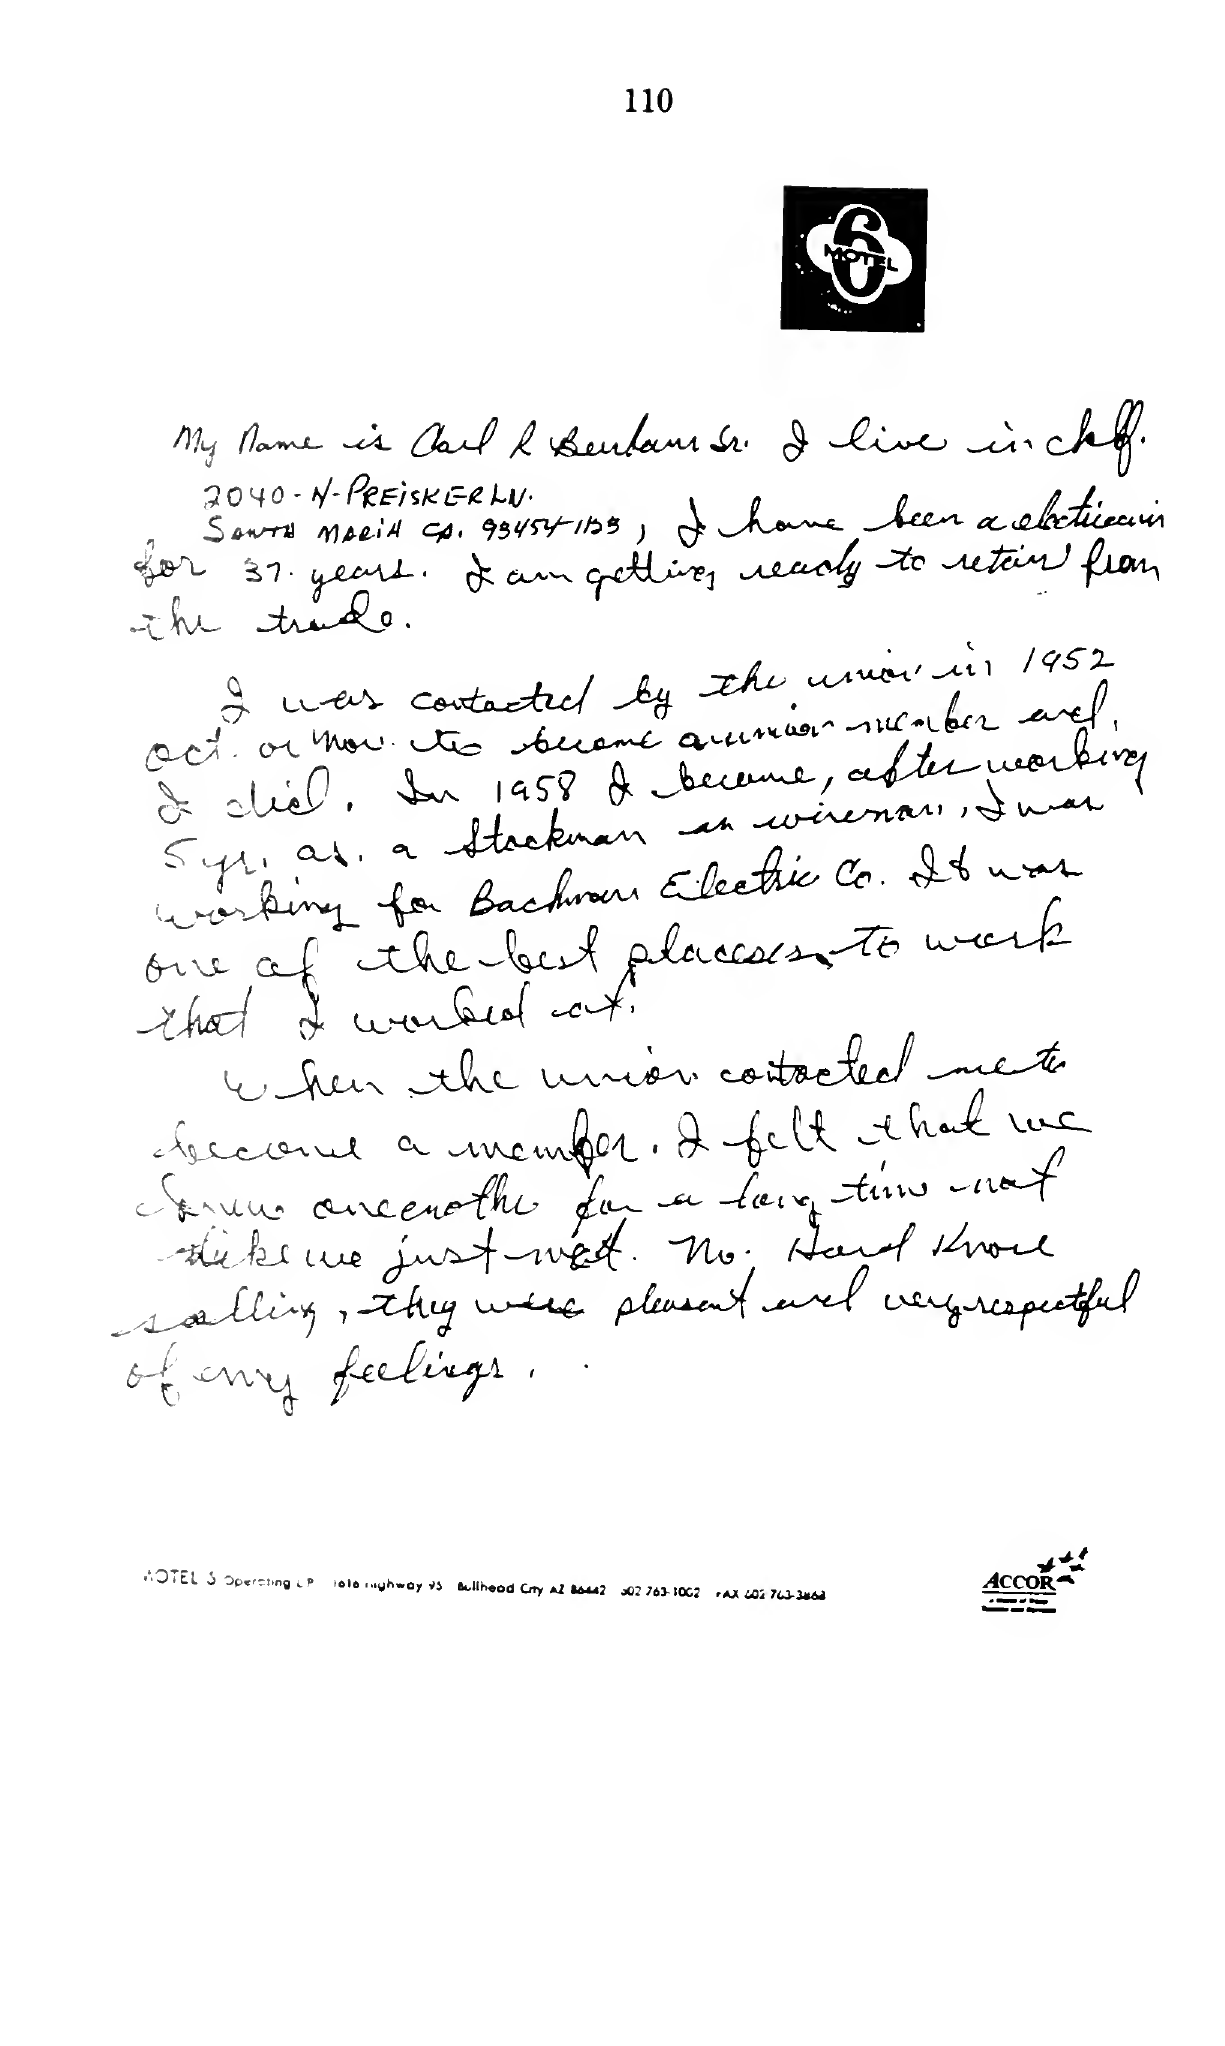 110
MOTEL 6
My Name is Carl R Benham Sr. I live in
2040-N-PREiSKER LN.
SANTA MARIA CA. 93454-1133, I have been a electricain
for 37. years. I am getting ready to retair from
the trade.
I was contacted by the union in 1952
oct. or Nov. to become a union member and,
I did. In 1958 I become, after working
5 yr. as. a Stockman an wireman, I was
working for Bachman Electric Co. It was
one of the best placeses to work
that I worked at.
When the union contacted me to
become a member. I felt that we
one enothe for a long time not
like we just met. No. Hard Knoll
salling, they were pleasent and very respectful
of my feelings.
MOTEL 6 Operating L.P. 1616 Highway 95 Bullhead City AZ 86442 602 763-1002 FAX 602 763-3868
ACCOR